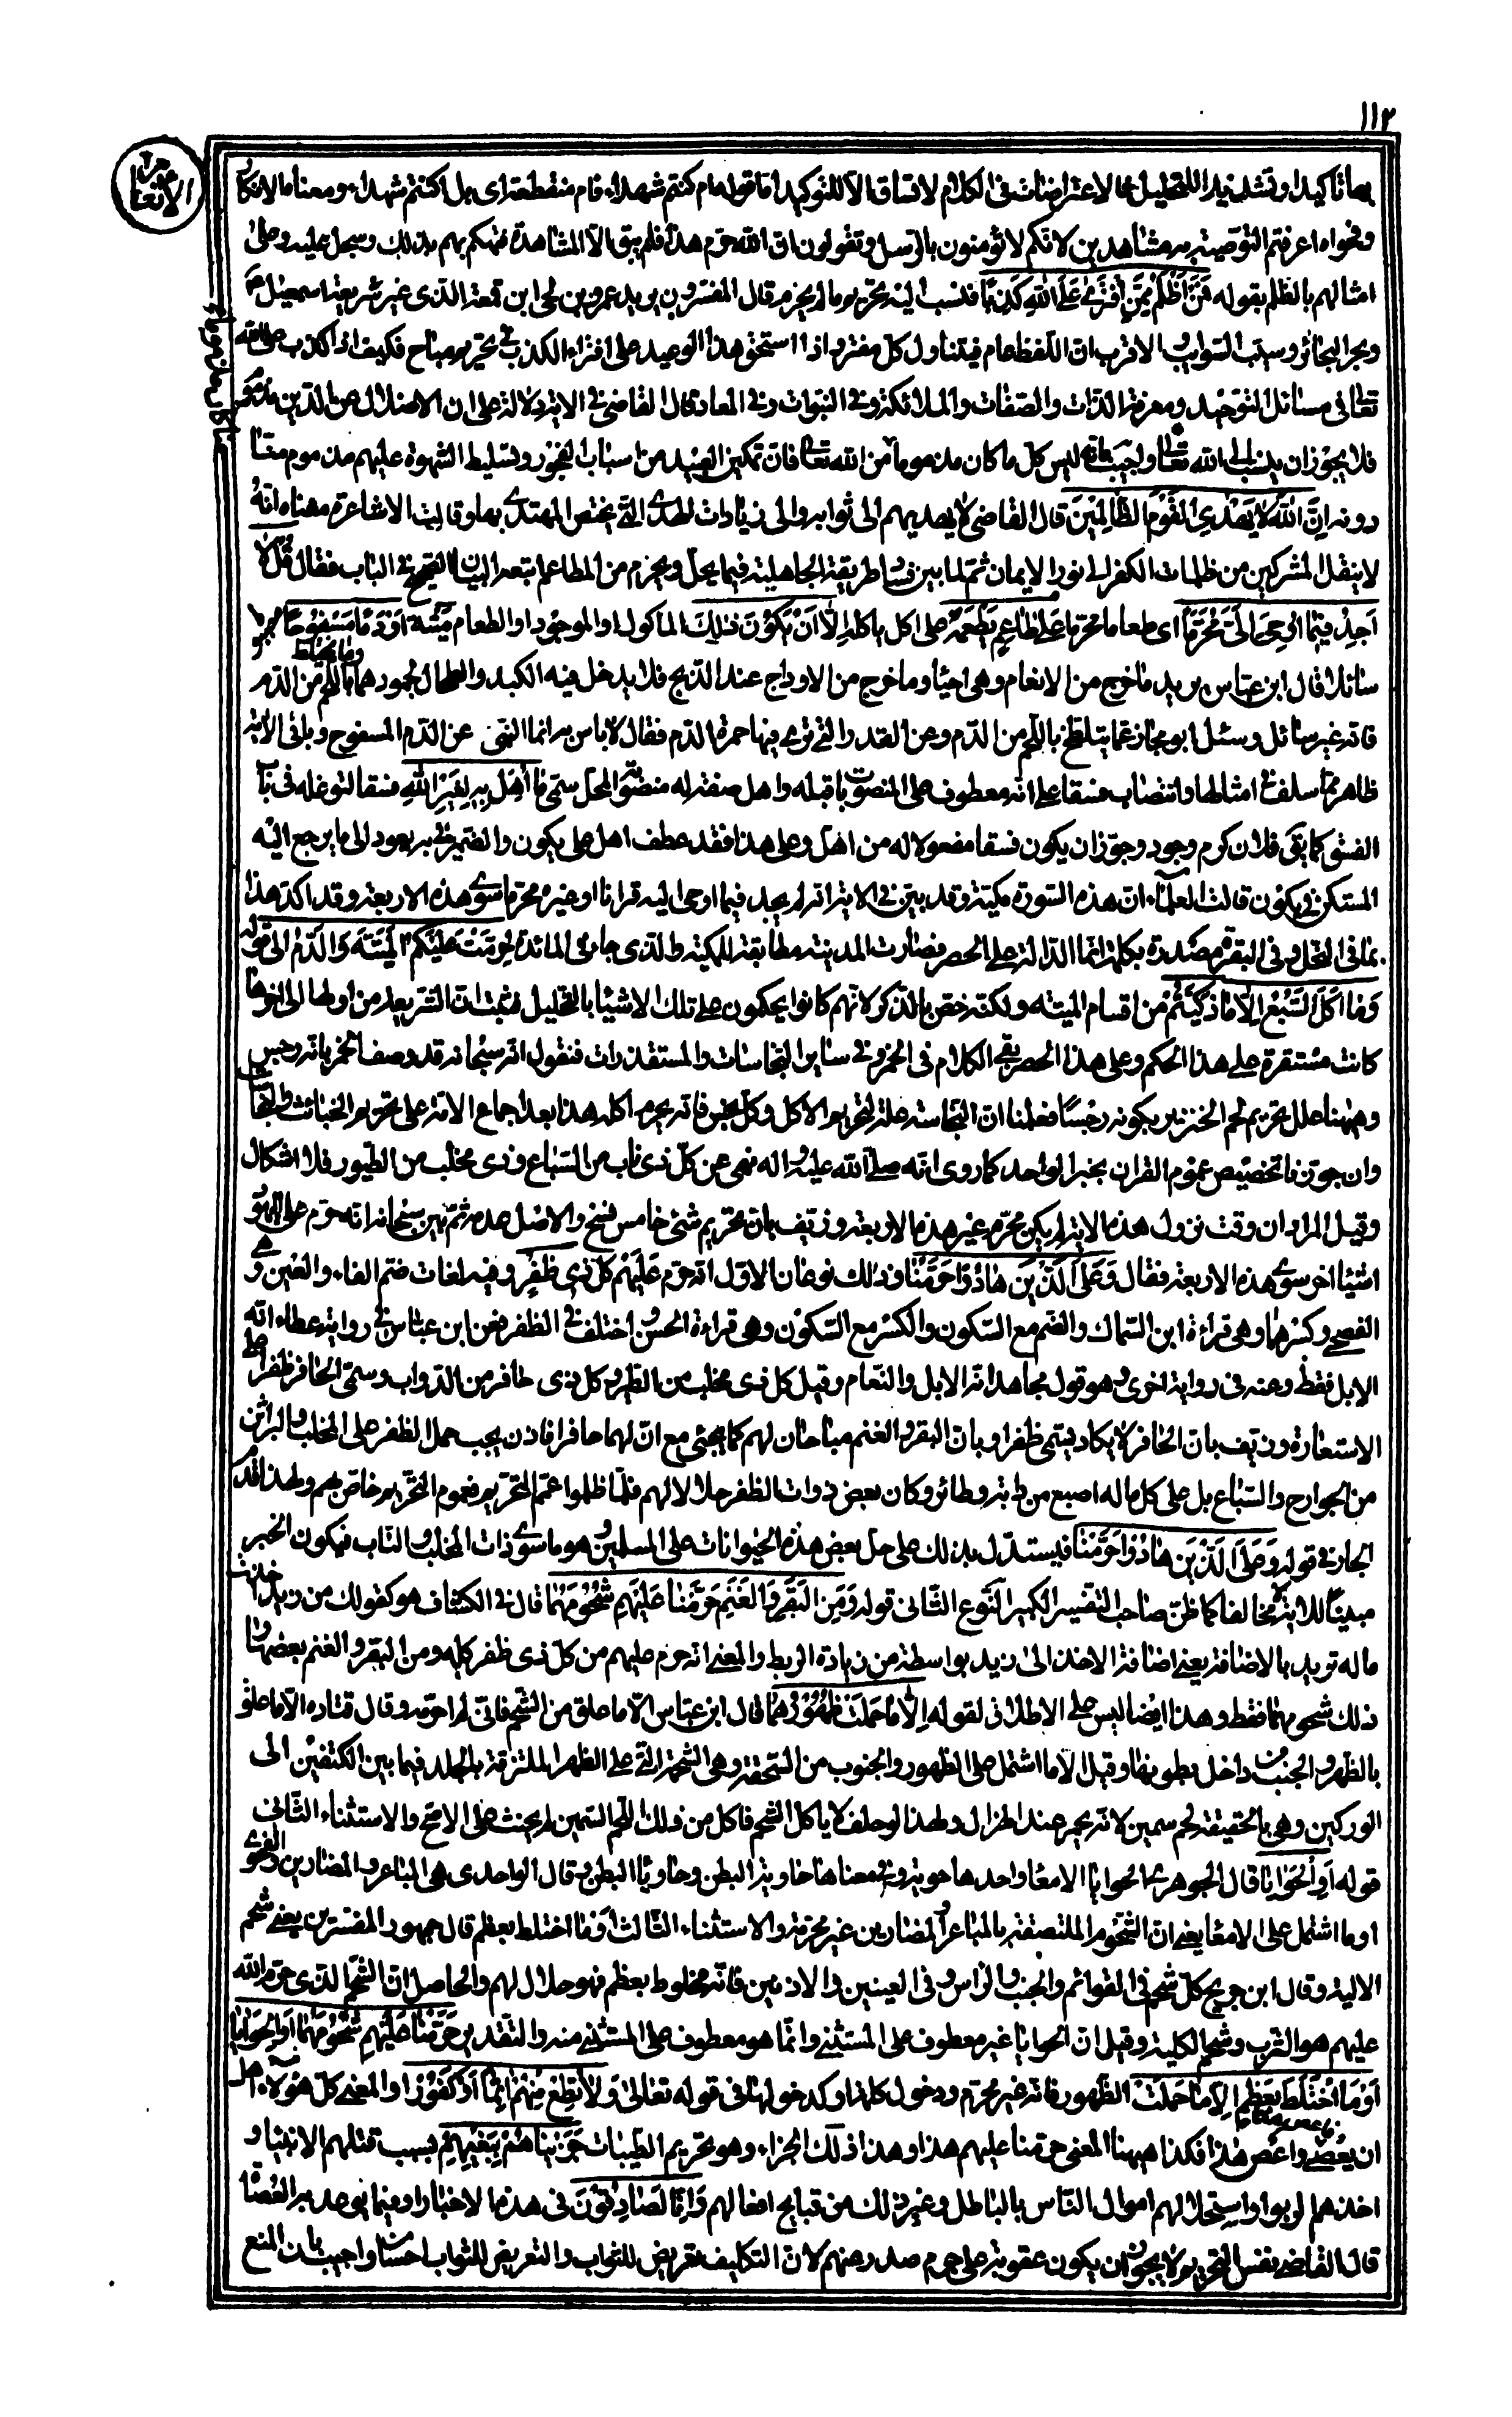 ١١٢
الانعام
بها تاكيدا وتشديدا للتحليل مما لاعتراضات في الكلام لا تساق الا للتوكيد اما قوله ام كنتم شهداء فام منقطعة اى بل اكنتم شهداء ومعناه الانكار
وفحواه اعرفتم التوصية به مشاهدين لانكم لا تؤمنون بالرسل وتقولون ان الله حرم هذا فلم يبق الا المشاهدة فتهكم بهم بذلك وسجل عليه وعلى
امثالهم بالظلم بقوله فَمَنْ اَظْلَمُ مِمَّنِ افْتَرٰى عَلَى اللّٰهِ كَذِبًا فنسب اليه تحريم ما لم يحرم قال المفسرون يريد عمرو بن لحى ابن قمعة الذى غير شريعة اسمعيل
وبحر البحائر وسيب السوائب والاقرب ان اللفظ عام فيتناول كل مفتر اذا استحق هذا الوعيد على افتراء الكذب في تحريم مباح فكيف اذا كذب على الله
تعالى في مسائل التوحيد ومعرفة الذات والصفات والملائكة وفي النبوات وفي المعاد قال القاضى في الاية دلالة على ان الاضلال عن الدين مذموم
فلا يجوز ان ينسب الى الله تعالى واجيب بانه ليس كل ما كان مذموما منا من الله تعالى فان تمكين العبيد من اسباب الفجور وتسليط الشهوة عليهم مذموم منا
دونه اِنَّ اللّٰهَ لَا يَهْدِى الْقَوْمَ الظَّالِمِيْنَ قال القاضى لا يهديهم الى ثوابه والى زيادات الهدى التى يختص المهتدى بها وقالت الاشاعرة معناه انه
لا ينقل المشركين من ظلمات الكفر الى نور الايمان ثم لما بين فساد طريقة الجاهلية فيما يحل ويحرم من المطاعم اتبعه البيان الصحيح في الباب فقال قُلْ لَا
اَجِدُ فِيْمَا اُوْحِىَ اِلَىَّ مُحَرَّمًا اى طعاما محرما عَلٰى طَاعِمٍ يَطْعَمُهُ على اكل ياكله اِلَّا اَنْ يَكُوْنَ ذلك الماكول او الموجود او الطعام مَيْتَةً اَوْ دَمًا مَسْفُوْحًا
سائلا قال ابن عباس يريد ما خرج من الانعام وهى احياء وما خرج من الاوداج عند الذبح فلا يدخل فيه الكبد والطحال لجمودهما وما يختلط باللحم من الدم
فانه غير سائل وسئل ابو مجلز عما يتلطخ باللحم من الدم وعن القدر التى يرى فيها حمرة الدم فقال لا باس به انما النهى عن الدم المسفوح وباقى الاية
ظاهر مما سلف في امثالها وانتصاب فسقا على انه معطوف على المنصوب ما قبله واهل صفة له منصوبة المحل سمى ما اُهِلَّ بِهٖ لِغَيْرِ اللّٰهِ فسقا لتوغله في باب
الفسق كما يقال فلان كرم وجود وجوز ان يكون فسقا مفعولا له من اهل وعلى هذا فقد عطف اهل على يكون والضمير في به يعود الى ما يرجع اليه
المستكن في يكون قالت العلماء ان هذه السورة مكية وقد بين في الاية انه لم يجد فيما اوحى اليه قرانا او غيره محرما سوى هذه الاربعة وقد اكد هذا
بما في النحل وفي البقرة مصدرة بكلمة انما الدالة على الحصر فصارت المدنية مطابقة للمكية والذى جاء في المائدة حُرِّمَتْ عَلَيْكُمُ الْمَيْتَةُ وَالدَّمُ الى قوله
وَمَا اَكَلَ السَّبُعُ اِلَّا مَا ذَكَّيْتُمْ من اقسام الميتة ولكنه خص بالذكر لانهم كانوا يحكمون على تلك الاشياء بالتحليل فثبت ان الشريعة من اولها الى اخرها
كانت مستقرة على هذا الحكم وعلى هذا الحصر بقى الكلام فى الخمر وفي سائر النجاسات والمستقذرات فنقول انه سبحانه قد وصف الخمر بانه رجس
وههنا علل تحريم لحم الخنزير بكونه رجسا فعلمنا ان النجاسة علة لتحريم الاكل وكل نجس فانه يحرم اكله هذا بعد اجماع الامة على تحريم الخبائث والنجاسات
وان جوزنا تخصيص عموم القران بخبر الواحد كما روى انه صلى الله عليه واله نهى عن كل ذى ناب من السباع وذى مخلب من الطيور فلا اشكال
وقيل المراد ان وقت نزول هذه الاية لم يكن محرم غير هذه الاربعة وزيف بان تحريم شئ خامس نسخ والاصل عدمه ثم بين سبحانه انه حرم على اليهود
اشياء اخر سوى هذه الاربعة فقال وَعَلَى الَّذِيْنَ هَادُوْا حَرَّمْنَا وذلك نوعان الاول انه حرم عَلَيْهِمْ كُلَّ ذِى ظُفُرٍ وفيه لغات ضم الفاء والعين وهى
الفصحى وكسرهما وهى قراءة ابن السماك والضم مع السكون والكسر مع السكون وهى قراءة الحسن واختلف في الظفر فعن ابن عباس في رواية عطاء انه
الابل فقط وعنه فى رواية اخرى وهو قول مجاهد انه الابل والنعام وقيل كل ذى مخلب من الطير وكل ذى حافر من الدواب وسمى الحافر ظفرا على
الاستعارة وزيف بان الحافر لا يكاد يسمى ظفرا وبان البقر والغنم مباحان لهم كما يجئ مع ان لهما حافرا فاذن يجب حمل الظفر على المخالب والبراثن
من الجوارح والسباع بل على كل ماله اصبع من دابة وطائر وكان بعض ذوات الظفر حلالا لهم فلما ظلموا عمم التحريم فعموم التحريم خاص بهم ولهذا قدم
الجار في قوله وَعَلَى الَّذِيْنَ هَادُوْا حَرَّمْنَا فيستدل بذلك على حل بعض هذه الحيوانات على المسلمين وهو ما سوى ذات المخلب والناب فيكون الخبر
مبينا للاية لا مخالفا كما ظن صاحب التفسير الكبير النوع الثانى قوله وَمِنَ الْبَقَرِ وَالْغَنَمِ حَرَّمْنَا عَلَيْهِمْ شُحُوْمَهُمَا قال في الكشاف هو كقولك من زيد اخذت
ماله تريد بالاضافة يعنى اضافة الاخذ الى زيد بواسطة من زيادة الربط والمعنى انه حرم عليهم من كل ذى ظفر كله ومن البقر والغنم بعضهما
ذلك شحومهما فقط وهذا ايضا ليس على الاطلاق لقوله اِلَّا مَا حَمَلَتْ ظُهُوْرُهُمَا قال ابن عباس الا ما علق من الشحم فانى لم احرمه وقال قتاده الا ما علق
بالظهر والجنب من داخل بطونهما وقيل الا ما اشتمل على الظهور والجنوب من السحفة وهى الشحمة التى على الظهر الملتزقة بالجلد فيما بين الكتفين الى
الوركين وهى بالحقيقة لحم سمين لانه يحمر عند الهزال ولهذا لو حلف لا ياكل الشحم فاكل من ذلك اللحم السمين لم يحنث على الاصح والاستثناء الثانى
قوله اَوِ الْحَوَايَا قال الجوهرى الحوايا الامعاء واحدها حوية وفي معناها حاوية البطن وحاوياء البطن وقال الواحدى هى المباعر والمصارين والفحوى
او ما اشتمل على الامعاء يعنى ان الشحوم الملتصقة بالمباعر والمصارين غير محرمة والاستثناء الثالث اَوْ مَا اخْتَلَطَ بِعَظْمٍ قال جمهور المفسرين يعنى شحم
الالية وقال ابن جريج كل شحم فى القوائم والجنب والراس وفى العينين والاذنين فانه مخلوط بعظم فهو حلال لهم والحاصل ان الشحم الذى حرم الله
عليهم هو الثرب وشحم الكلية وقيل ان الحوايا غير معطوف على المستثنى وانما هو معطوف على المستثنى منه والتقدير حَرَّمْنَا عَلَيْهِمْ شُحُوْمَهُمَا اَوِ الْحَوَايَا
اَوْ مَا اخْتَلَطَ بِعَظْمٍ اِلَّا مَا حَمَلَتْ الظهور فانه غير محرم ودخول كلمة او كدخولها فى قوله تعالى وَلَا تُطِعْ مِنْهُمْ اٰثِمًا اَوْ كَفُوْرًا والمعنى كل هؤلاء اهل
ان يعصى واعص هذا فكذا ههنا المعنى حرمنا عليهم هذا وهذا ذلك الجزاء وهو تحريم الطيبات جَزَيْنَاهُمْ بِبَغْيِهِمْ بسبب قتلهم الانبياء و
اخذهم لربوا واستحلالهم اموال الناس بالباطل وغير ذلك من قبايح افعالهم وَاِنَّا لَصَادِقُوْنَ فى هذه الاخبار او فيما يوعد به العصاة
قال القاضى نفس التحريم لا يجوز ان يكون عقوبة على جرم صدر عنهم لان التكليف تعريض للثواب والتعريض للثواب احسان واجيب بان المنع